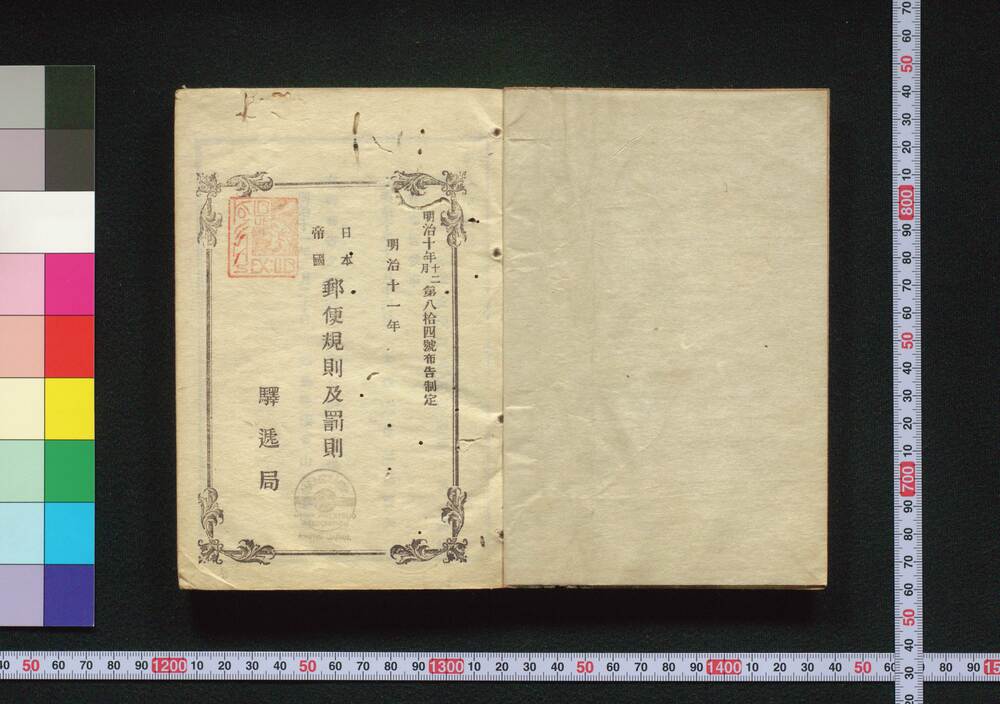 明治十年十二月第八拾四號布告制定
明治十一年
日本帝國郵便規則及罰則
驛遞局